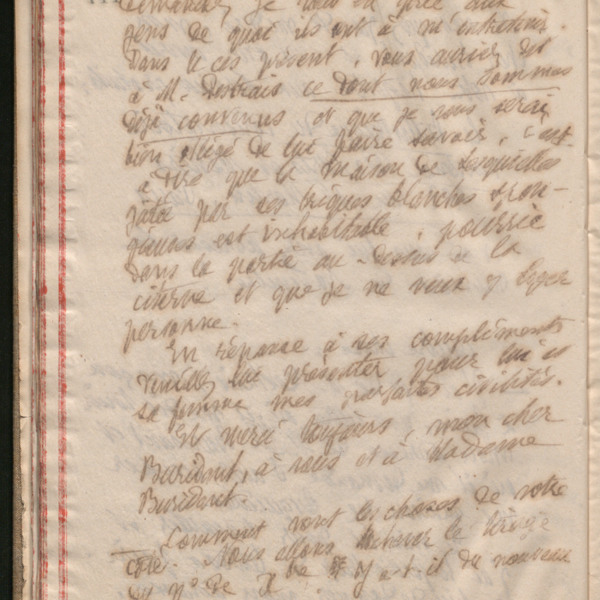 demandez, je vous en prie aux
gens de quoi ils ont à m'entretenir.
Dans le cas présent, vous auriez dit
à M. Destrais ce dont nous sommes
déjà convenus et que je vous serai
bien obligé de lui faire savoir, c'est
à dire que la maison de
gâtée par ses briques blanches spon-
gieuses est inhabitable, pourrie
dans la partie au-dessus de la
citerne et que je ne veux y loger
personne.
En réponse à ses compliments
veuillez lui présenter pour lui et
sa femme mes parfaites civilités.
Et merci toujours, mon cher
Buridant, à vous et à Madame
Buridant.
Comment vont les choses de votre
côté. Nous allons achever le tirage
du n° de Y a-t-il du nouveau